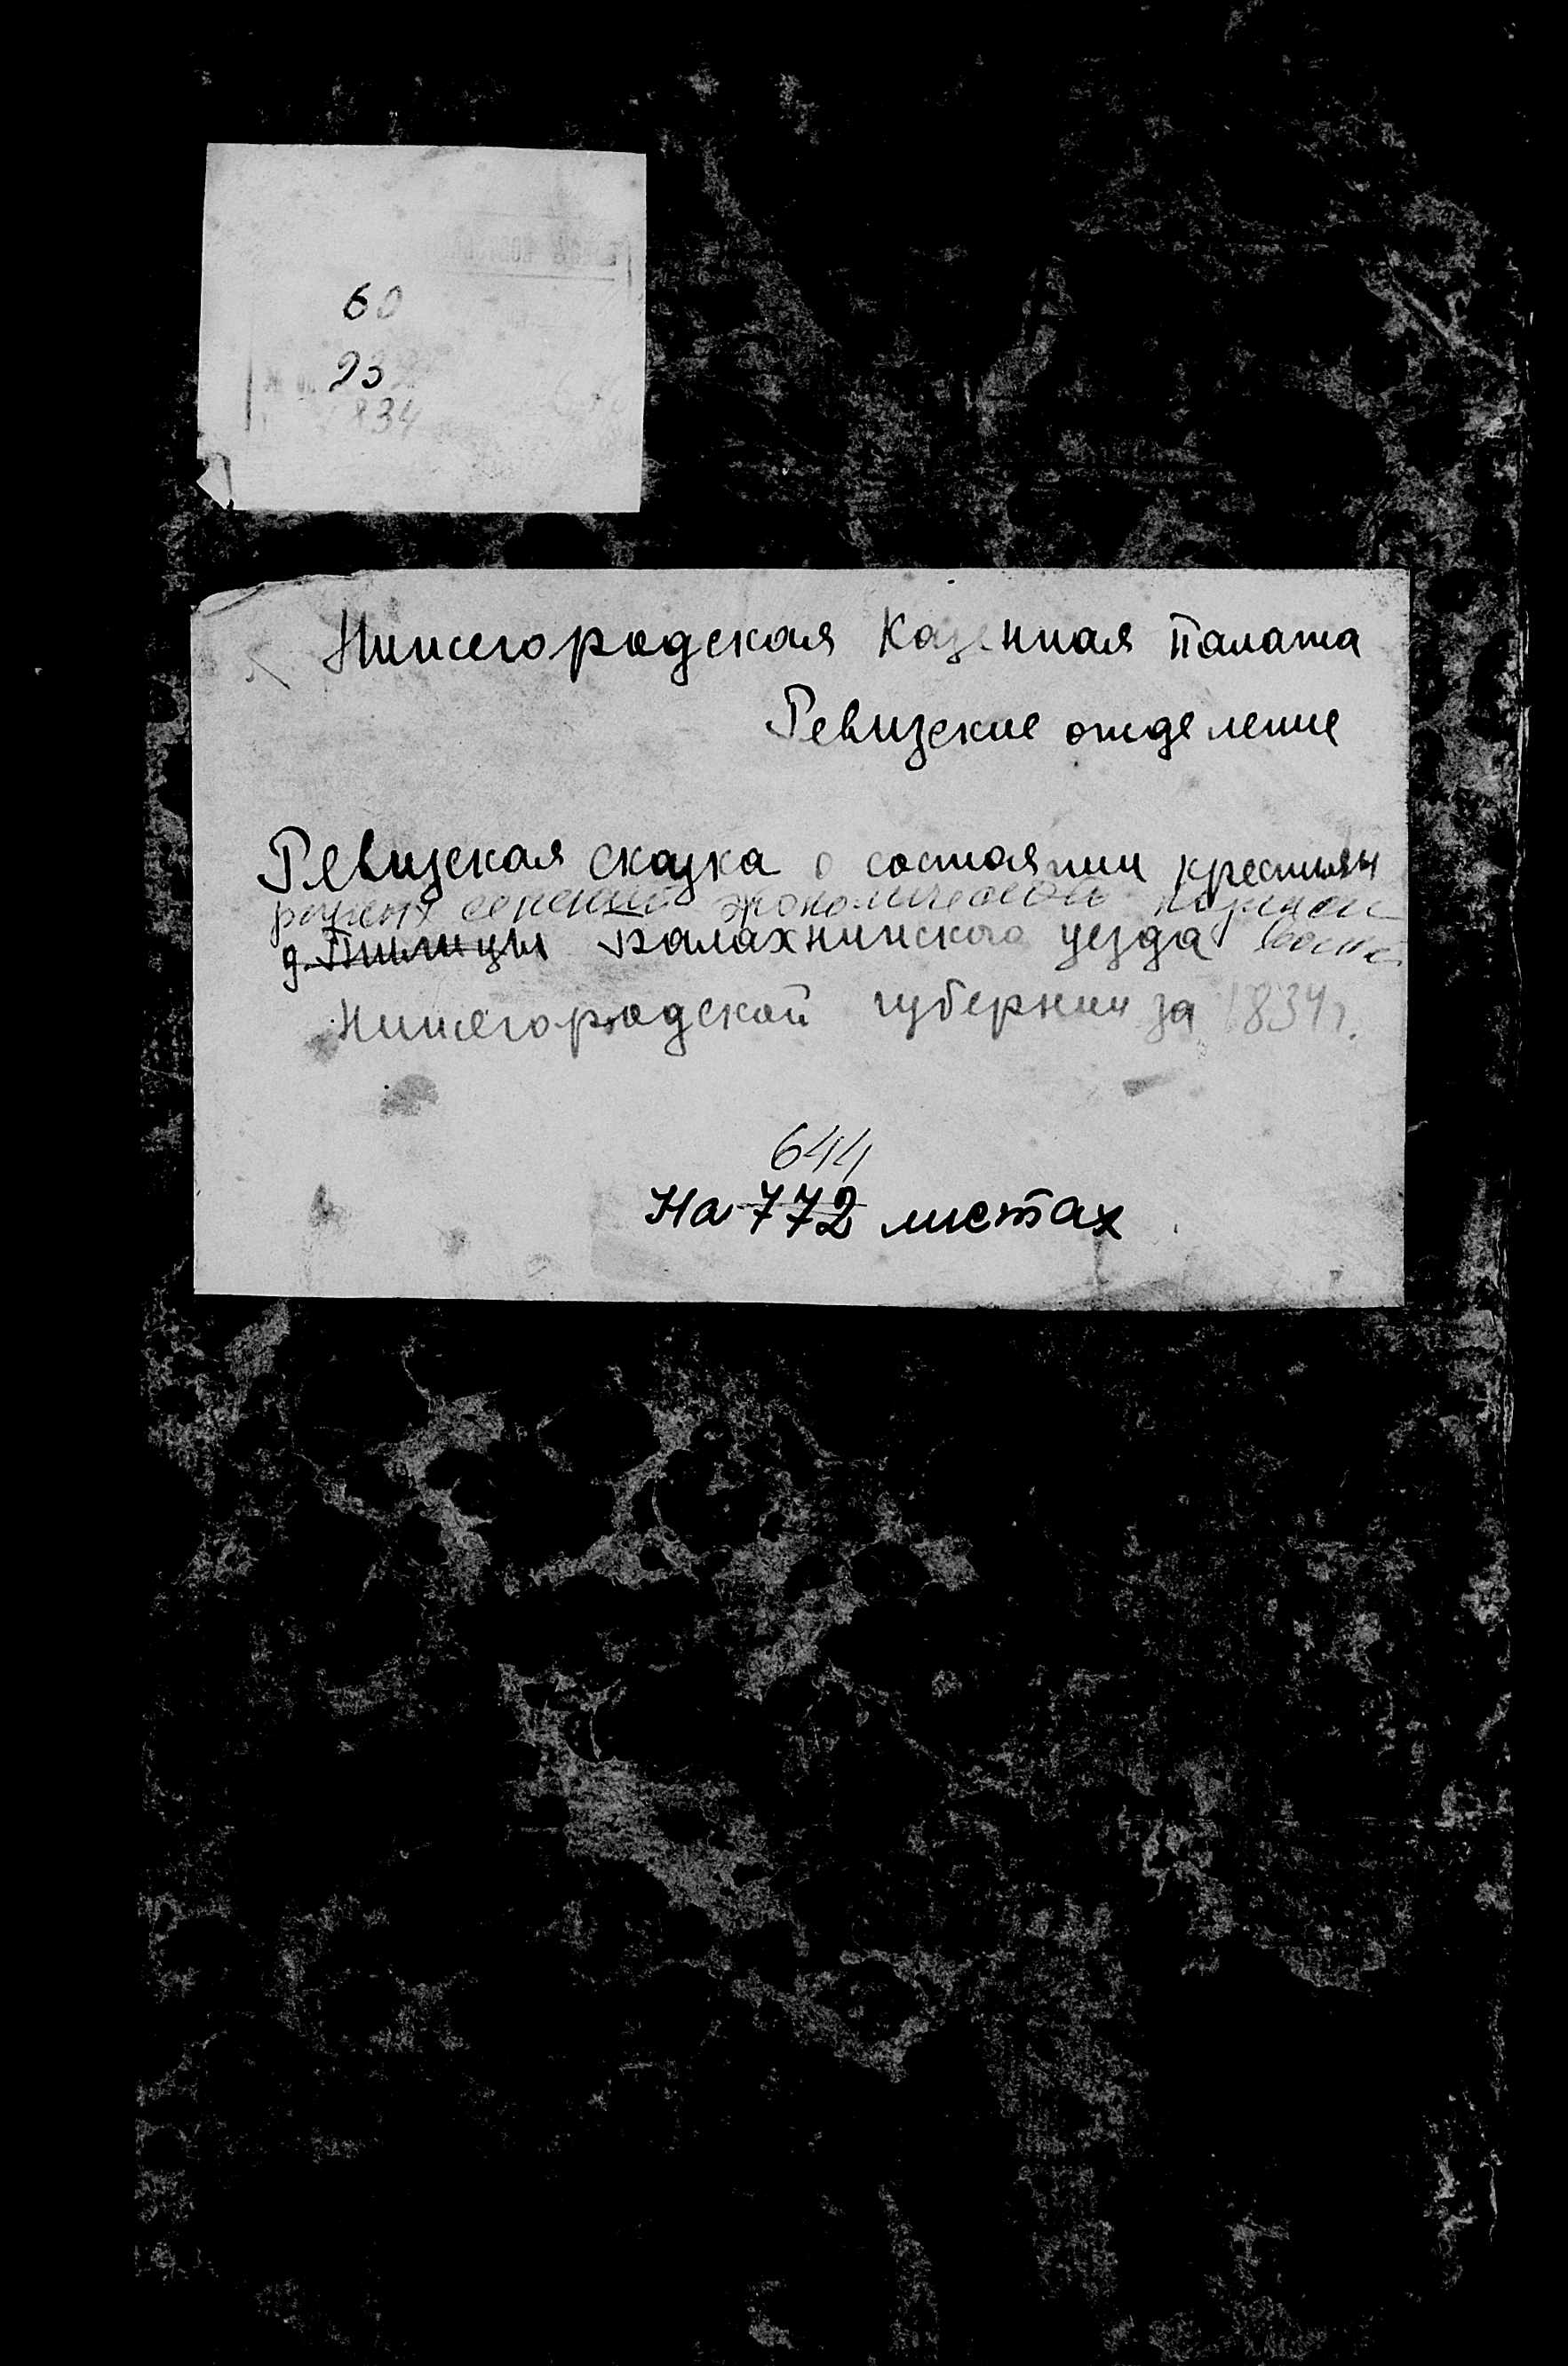 60
239
1834
Нижегородская Казенная Палата
Ревизские отделение
Ревизская сказка о состоянии крестьян
разных селений экономической
д. Пильницы Балахнинского уезда
Нижегородской губернии за 1834 г.
644
На 772 листах